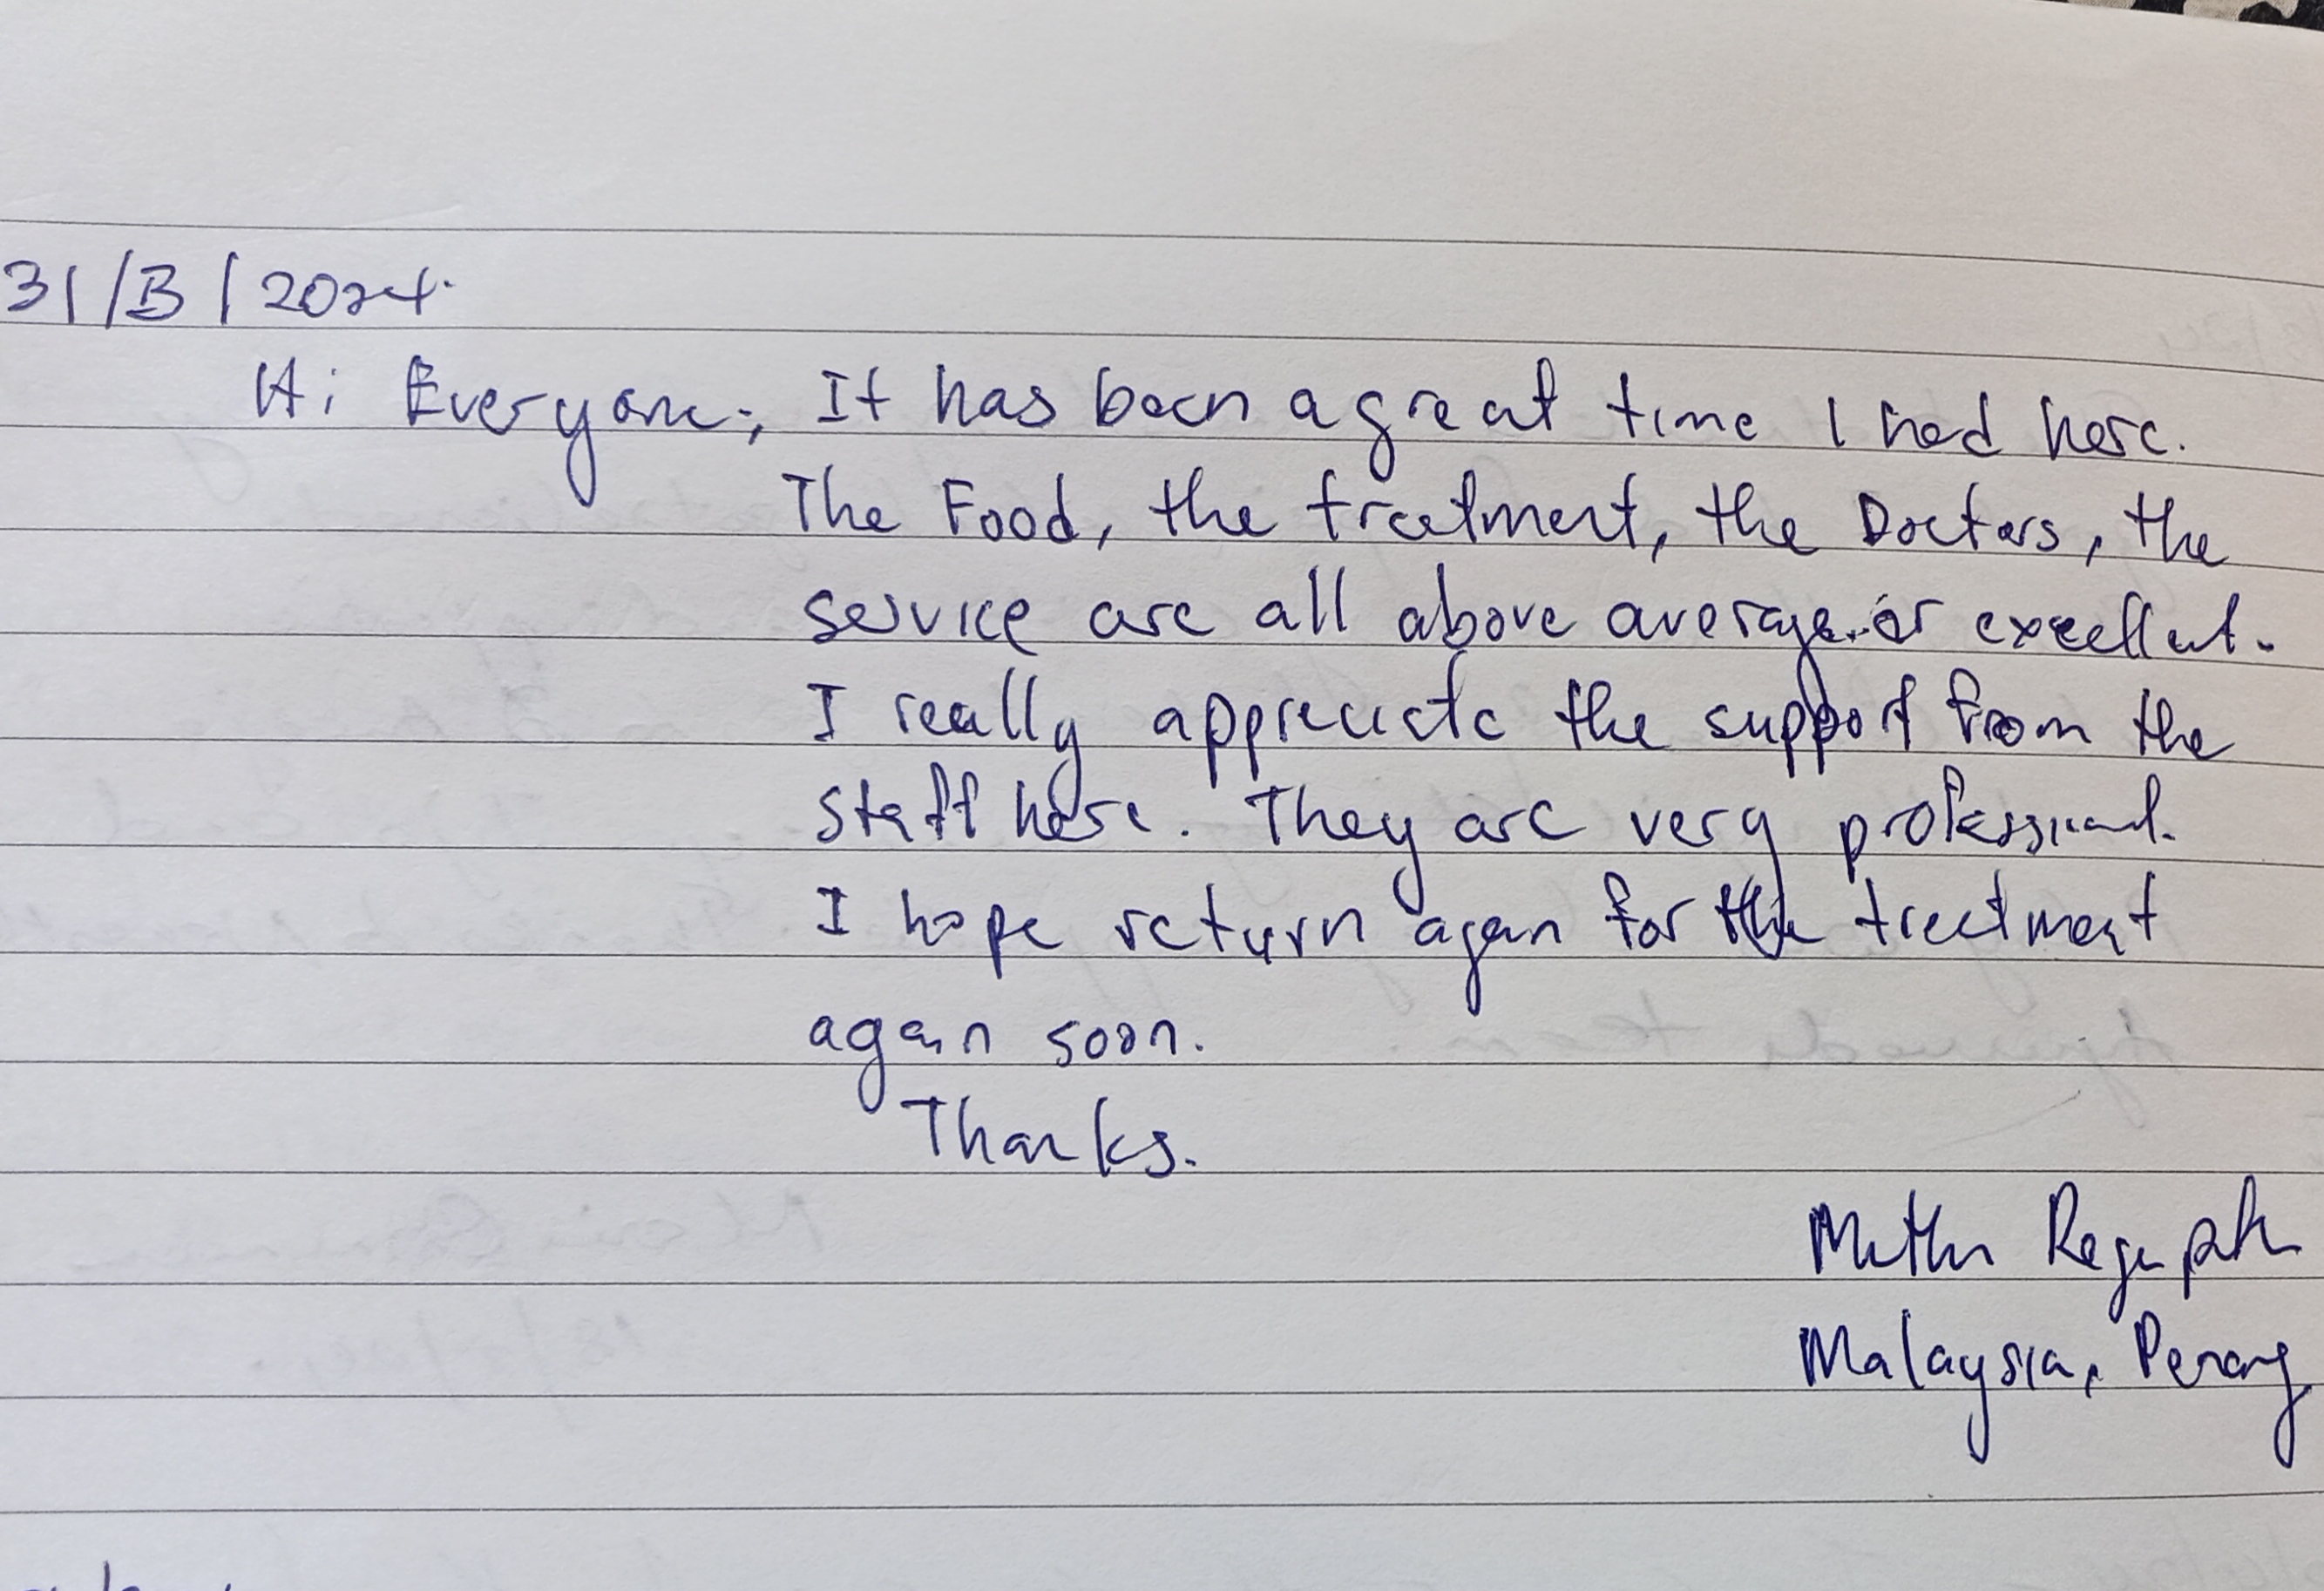 31/3/2024.
Hi Everyone, It has been a great time I had here.
The Food, the treatment, the Doctors, the
service are all above average or excellent.
I really appreciate the support from the
staff here. They are very professional.
I hope return again for the treatment
again soon.
Thanks.
Malaysia, Penang